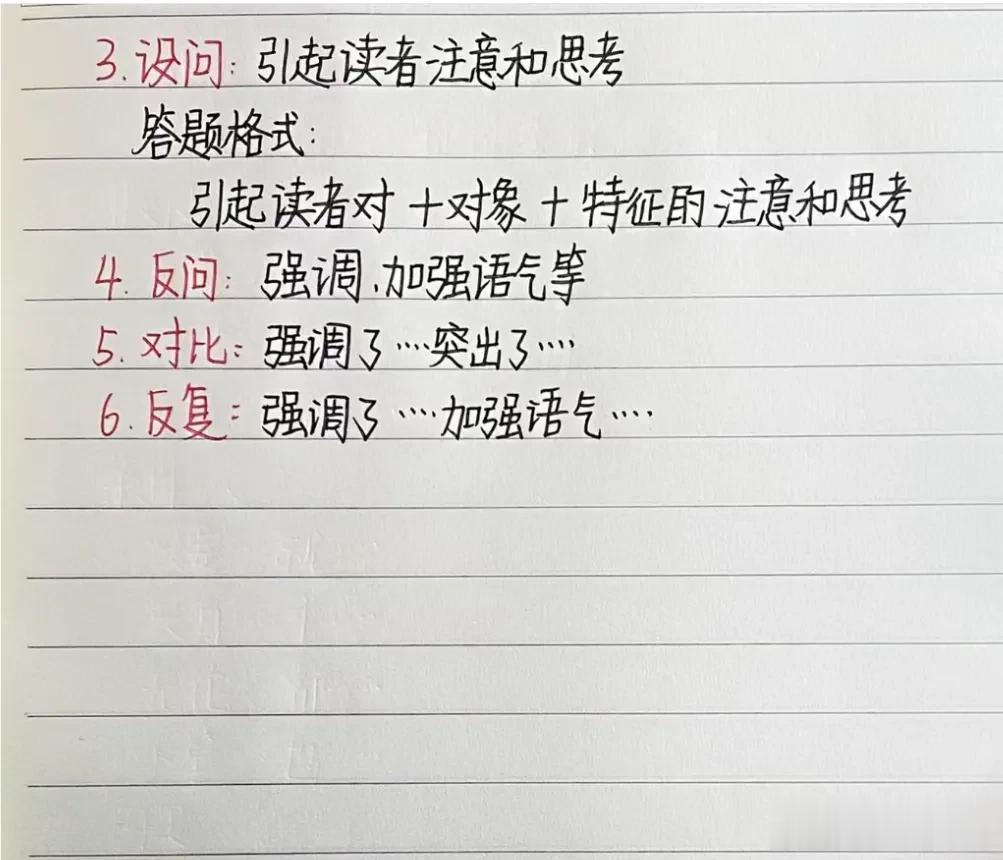 3.设问：引起读者注意和思考
答题格式：
引起读者对 +对象 + 特征的 注意和思考
4. 反问：强调、加强语气等
5. 对比：强调了····突出了····
6. 反复：强调了····加强语气····